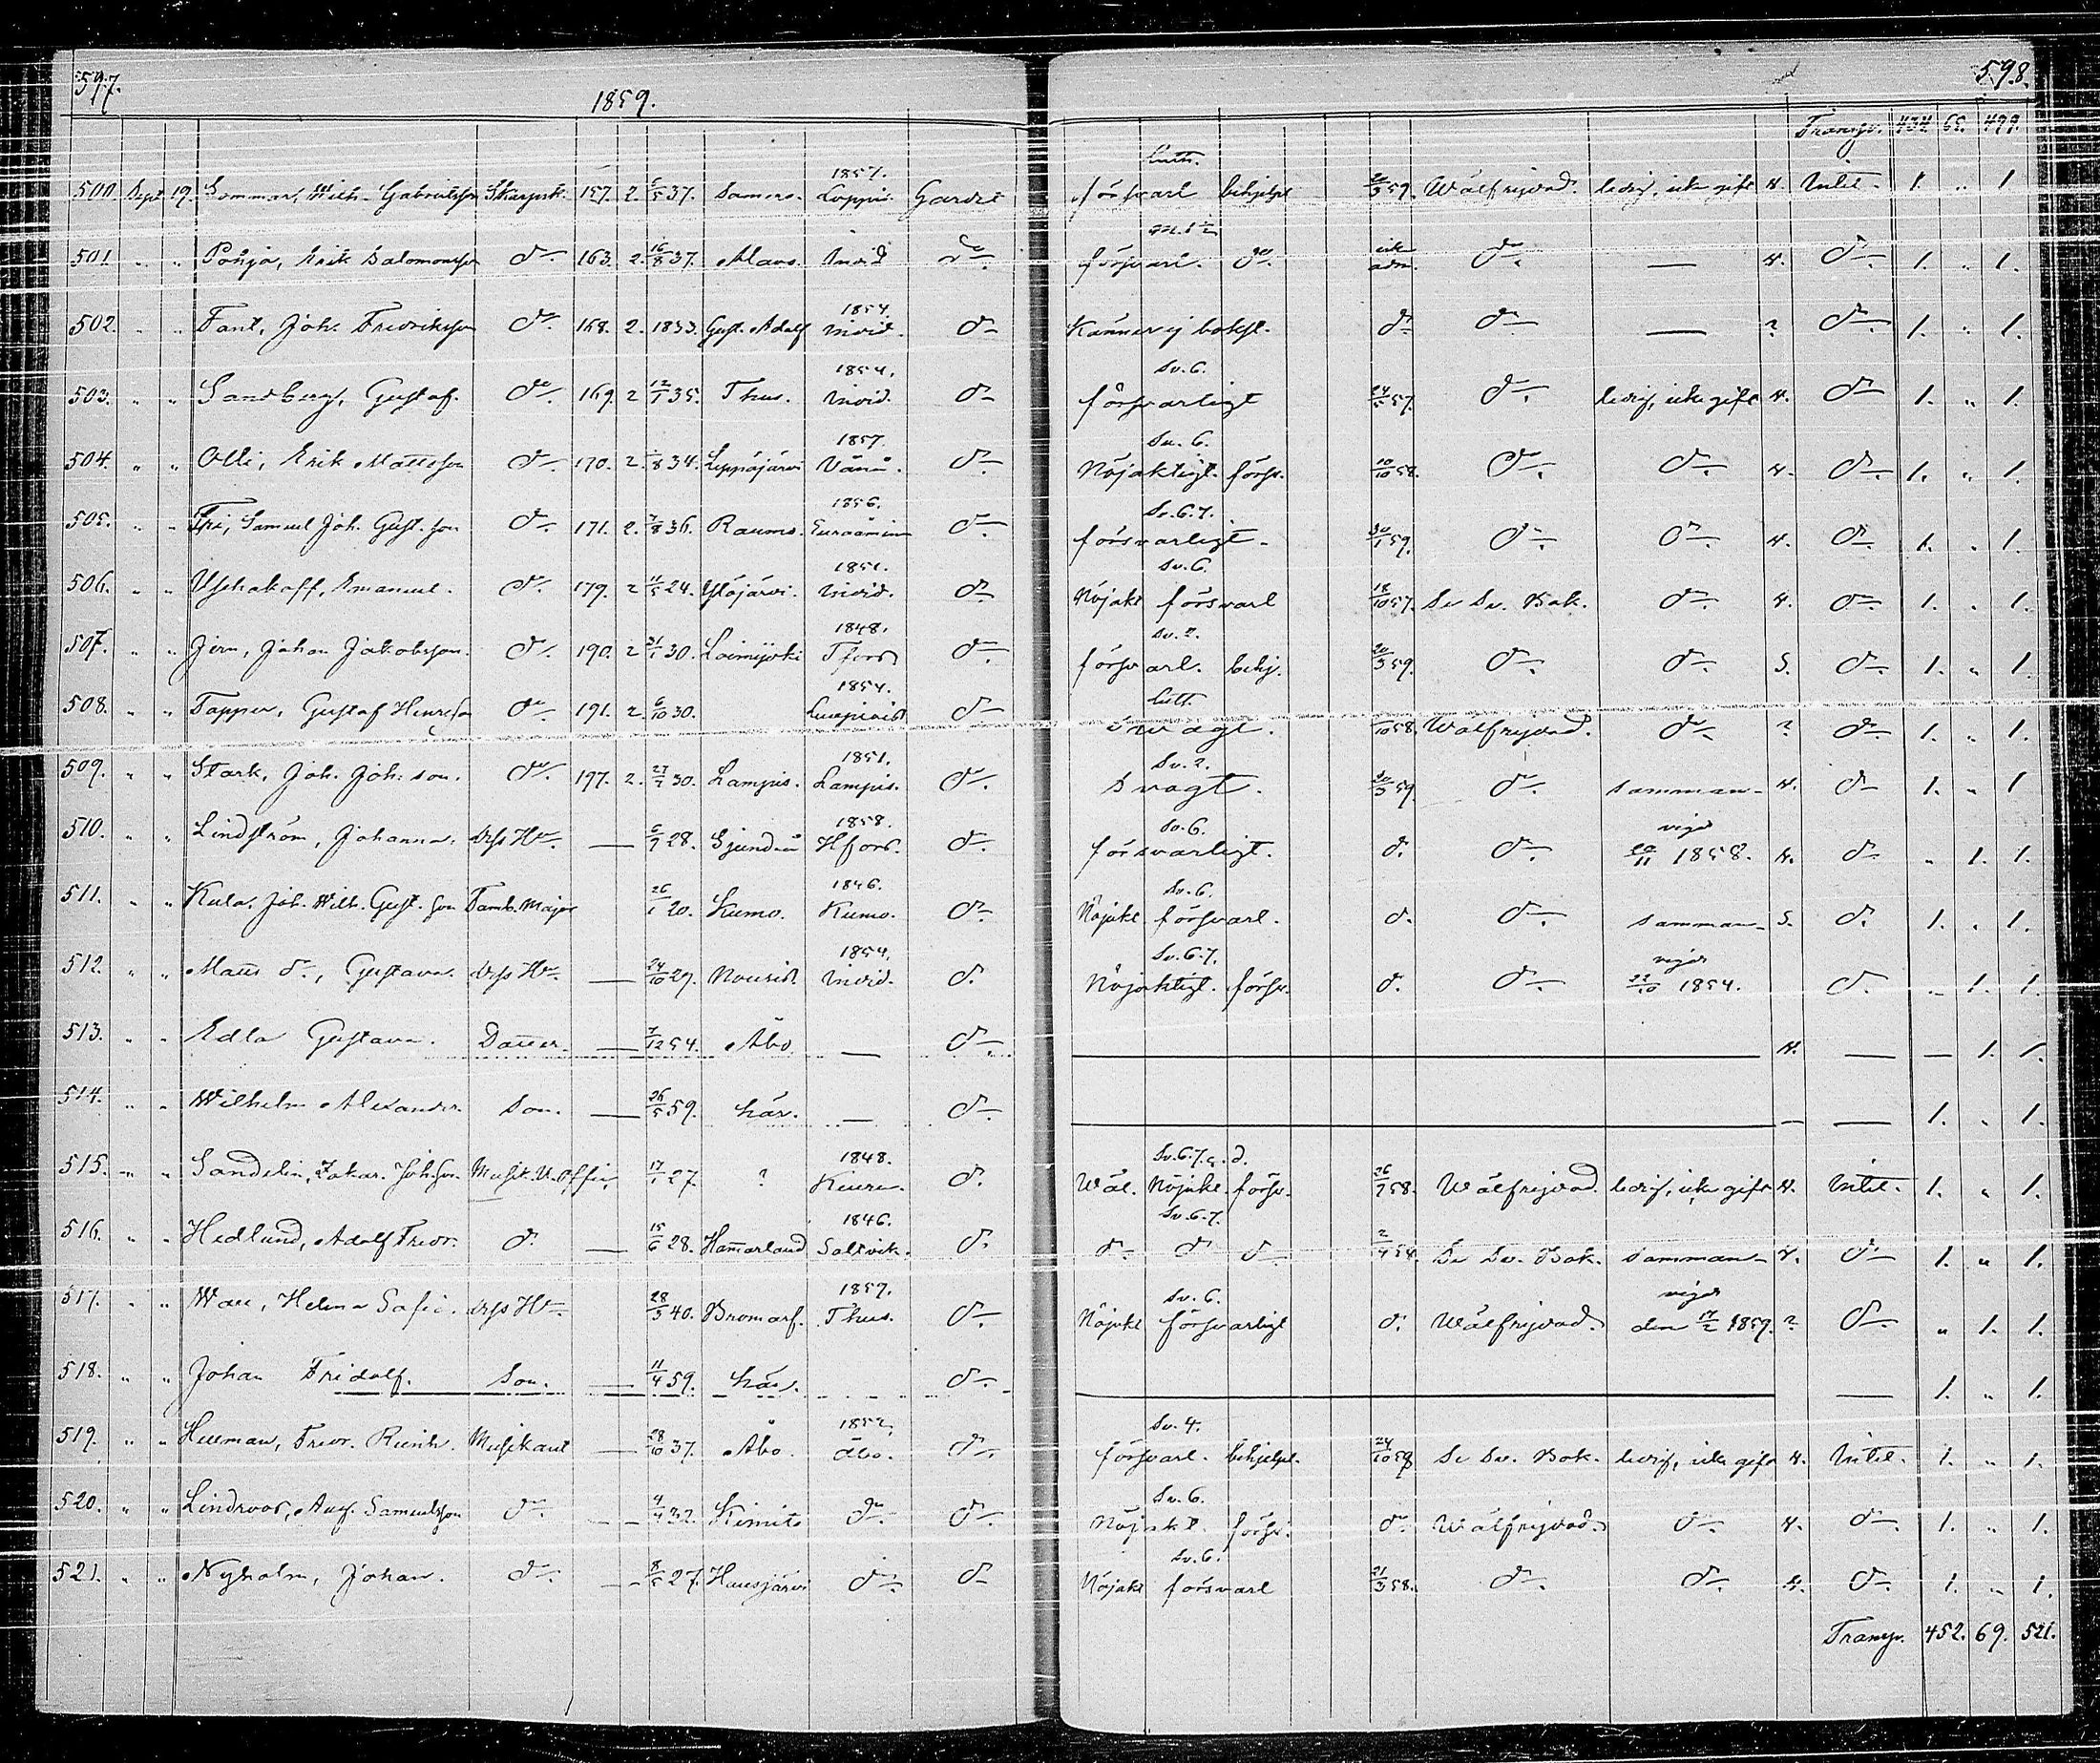 597.
1859.
598.
Transp. 434. 65. 499.
500. Sept. 19. Sommar, Wilh. Gabrielsson Skarpsk. 157. 2. 6/5 37. Somero. 1857. Loppis. Gardet Lutt. försvarl behjelpl 59. Wälfrejdad. ledig, icke gift 4. Intet. 1. " 1
501. " " Påhja, Erik Salomonsson do 163. 2. 16/8 37. Alavo. Invid do försvarl. do icke adm. do — 4. do 1. " 1.
502. " " Fant, Joh. Fredriksson do 168. 2. 1833. Gust. Adolf 1854. Invid. do Känner ej bokst. do do — ? do 1. " 1.
503. " " Sandberg, Gustaf. do 169. 2 12/1 35. Thus. 1854. Invid. do Sv. 6. försvarligt 57. do ledig, icke gift 4. do 1. " 1.
504. " " Olli, Erik Mattsson do 170. 2. 8 34. Leppäjärvi 1857. Vånå. do Sv. 6. Nöjaktigt. försv. 10/10 58. do do 4. do 1. " 1.
505. " " Fri, Samuel Joh. Gust. son do 171. 2. 7/8 36. Raumo. 1856. Euraåminne do Sv. 6. 7. försvarligt. 30/1 59. do do 4. do 1. " 1.
506. " " Uschakoff, Emanuel. do 179. 2 11/5 24. Ylöjärvi. 1851. Invid. do Sv. 6. Nöjakt försvarl 18/10 57. Se Sv. Bok. do 4. do 1. " 1.
507. " " Jern, Johan Jakobsson. do 190. 2 21/1 30. Loimijoki 1848. Tfors do Sv. 2. försvarl. behj. 20/3 59. do do 5. do 1. " 1.
508. " " Tapper, Gustaf Henrsson do 191. 2. 6/10 30. 1854. do Lutt. svagt. 10 58. Wälfrejdad. do ? do 1. " 1.
509. " " Stark, Joh. Joh. son. do 197. 2. 27/7 30. Lampis. 1851. Lampis. do Sv. 2. Svagt. 20/3 59 do samman- 4. do 1. " 1
510. " " Lindström, Johanna. dess Hu — 6/9 28. Sjundeå 1858. Hfors. do Sv. 6. försvarligt. do do vigd 20/11 1858. 4. do " 1. 1.
511. " " Kula, Joh. Wilh. Gust. son Tamb. Major 26/1 20. Kumo. 1846. Kumo. do Sv. 6. Nöjakt försvarl. do do samman- 5. do 1. " 1.
512. " " Matts dr., Gustava. dess Hu — 24/10 29. Nousis. 1854. Invid. do Sv. 6. 7. Nöjaktigt. försv. do do vigd 22/10 1854. do " 1. 1.
513. " " Edla Gustava. Dotter. — 7/12 54. Åbo — do 4. — — 1. 1.
514. " " Wilhelm Alexander. Son. — 26/5 59. här. — do — — 1. " 1.
515. " " Sandelin, Zakar. Joh. son. Musik. U. Offic. 17/1 27. ? 1848. do Sv. 6. 7. a. d. Wäl. Nöjakt. försv. 26/7 58. Wälfrejdad. ledig, icke gift 4. Intet. 1. " 1.
516. " " Hedlund, Adolf Fredr. do — 15/6 28. Hammarland 1846. Saltvik. do Sv. 6. 7. do do do 2/4 58. Se Sv. Bok. samman- 4. do 1. " 1.
517. " " Helena Sofia. dess Hu 28/3 40. Bromarf. 1857. Thus. do Sv. 6. Nöjakt försvarligt do Wälfrejdad. vigd den 17/2 1859. ? do " 1. 1.
518. " " Johan Fridolf. Son. — 11/4 59. här. do — 1. " 1.
519. " " Hellman, Fredr. Reinh. Musikant — 28/10 37. Åbo. 1852. Åbo. do Sv. 4. försvarl. behjelpl. 24/10 58 Se Sv. Bok. ledig, icke gift 4. Intet. 1. " 1.
520. " " Lindroos, Aug. Samuelsson do — 4/4 32. Kimito do do Sv. 6. Nöjakt. försv. do Wälfrejdad. do 4. do 1. " 1.
521. " " Nyholm, Johan. do — 8/5 27. Hausjärvi do do Sv. 6. Nöjakt försvarl 21/3 58. do do 4. do 1. " 1.
Transp. 452. 69. 521.